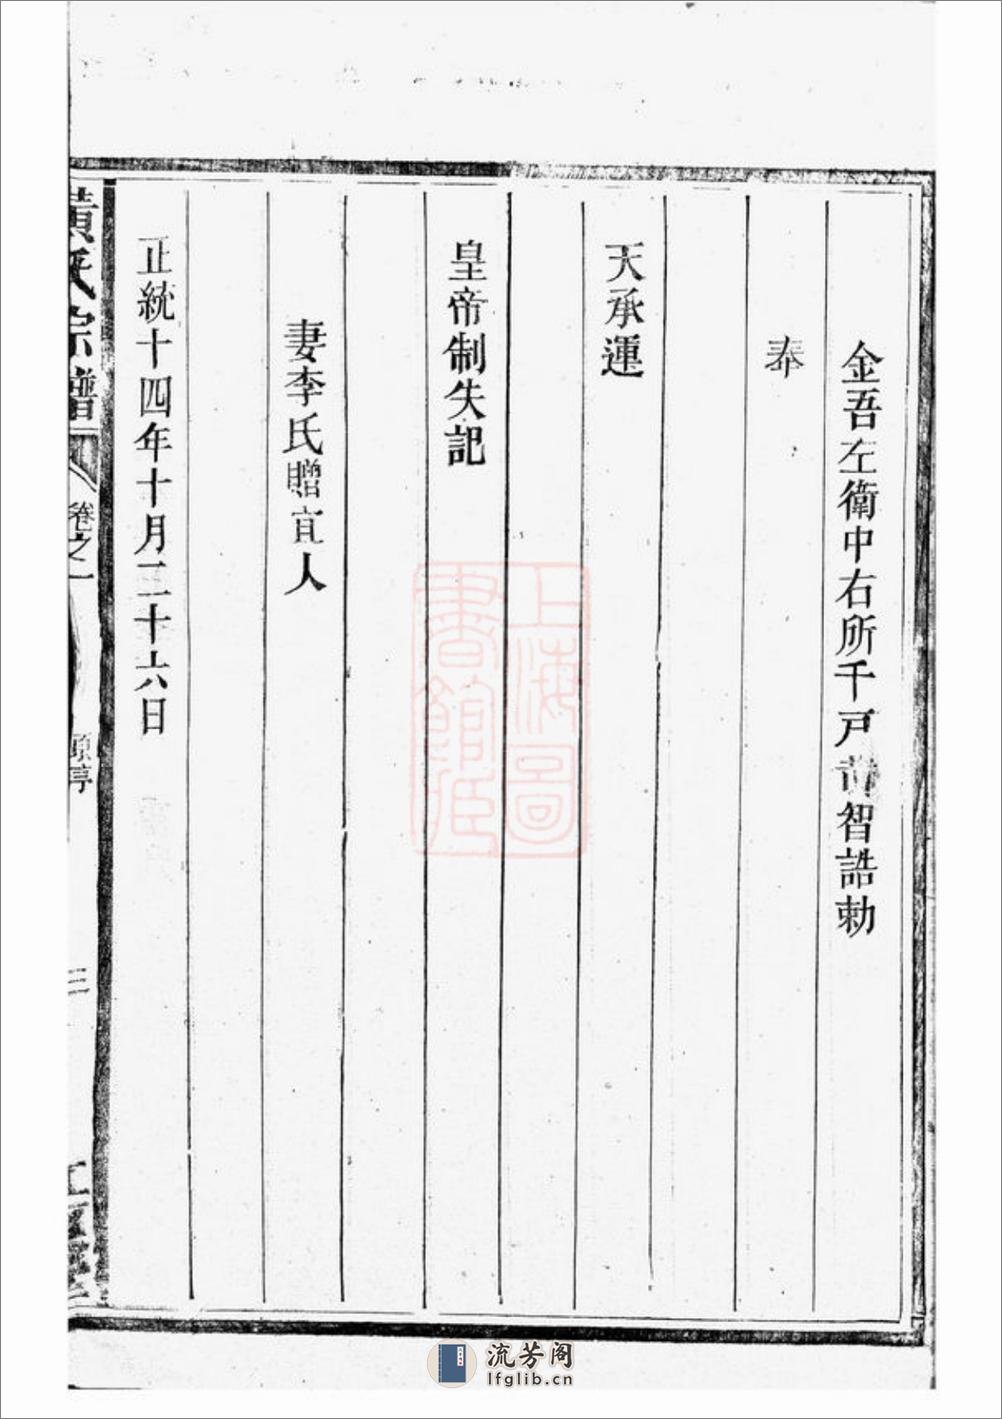 金吾左衛中右所千戸黄智誥勅
奉
天承運
皇帝制失記
妻李氏贈宜人
正統十四年十月二十六日
黃氏宗譜
卷之一
三
上海圖
書館藏
流芳阁
lfglib.cn